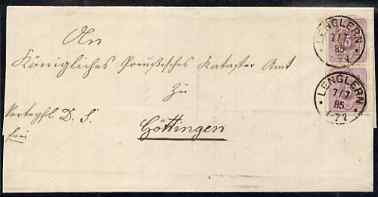 An
Königliches Preußisches Kataster Amt
zu
Göttingen
Portopfl. D. S.
frei
LENGLERN
7/7
85
LENGLERN
7/7
85